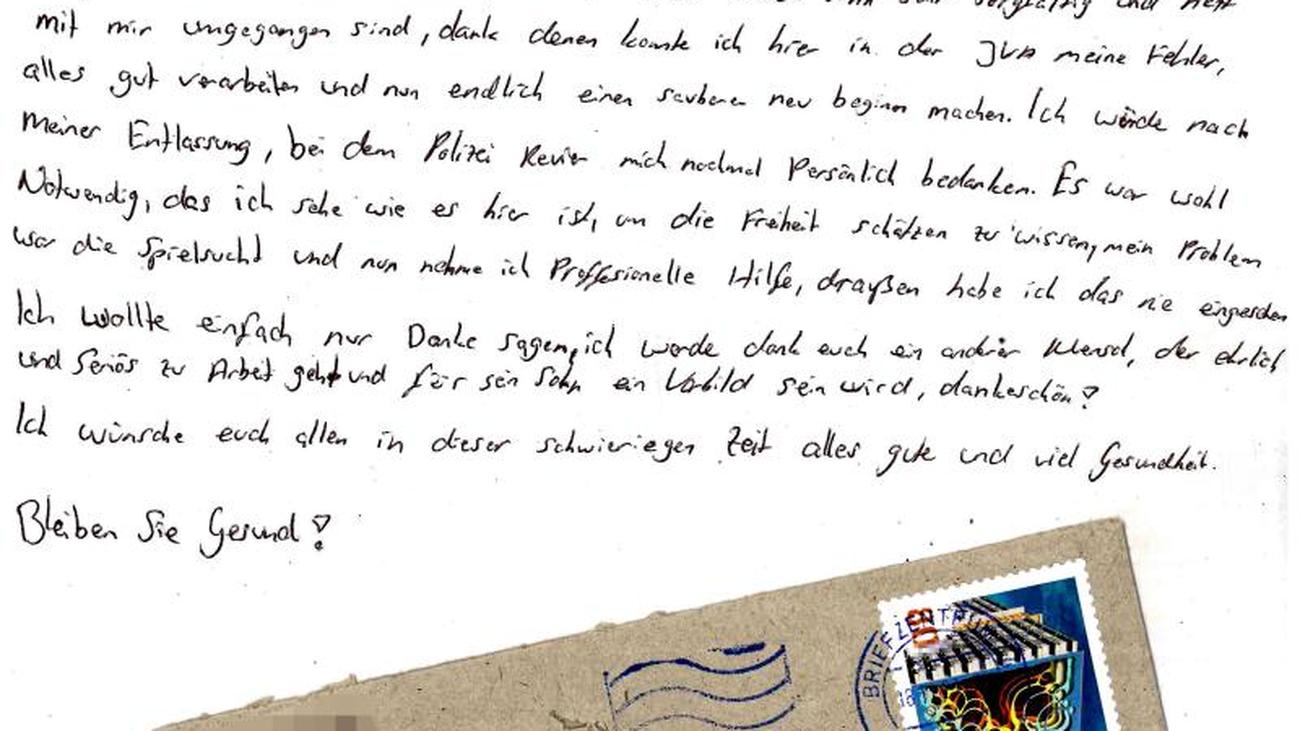 sorgfältig und nett
mit mir umgegangen sind, dank denen konnte ich hier in der JVA meine Fehler,
alles gut verarbeiten und nun endlich einen sauberen neu beginn machen. Ich würde nach
meiner Entlassung, bei dem Polizei Revier mich nochmal Persönlich bedanken. Es war wohl
Notwendig, das ich sehe wie es hier ist, um die Freiheit schätzen zu wissen, mein Problem
war die Spielsucht und nun nehme ich Proffesionelle Hilfe, draußen habe ich das nie eingesehen
Ich wollte einfach nur Danke sagen, ich werde dank euch ein anderer Mensch, der ehrlich
und Seriös zu Arbeit geht und für sein Sohn ein Vorbild sein wird, dankeschön!
Ich wünsche euch allen in dieser schwieriegen Zeit alles gute und viel Gesundheit.
Bleiben Sie Gesund!
BRIEFZENTRUM